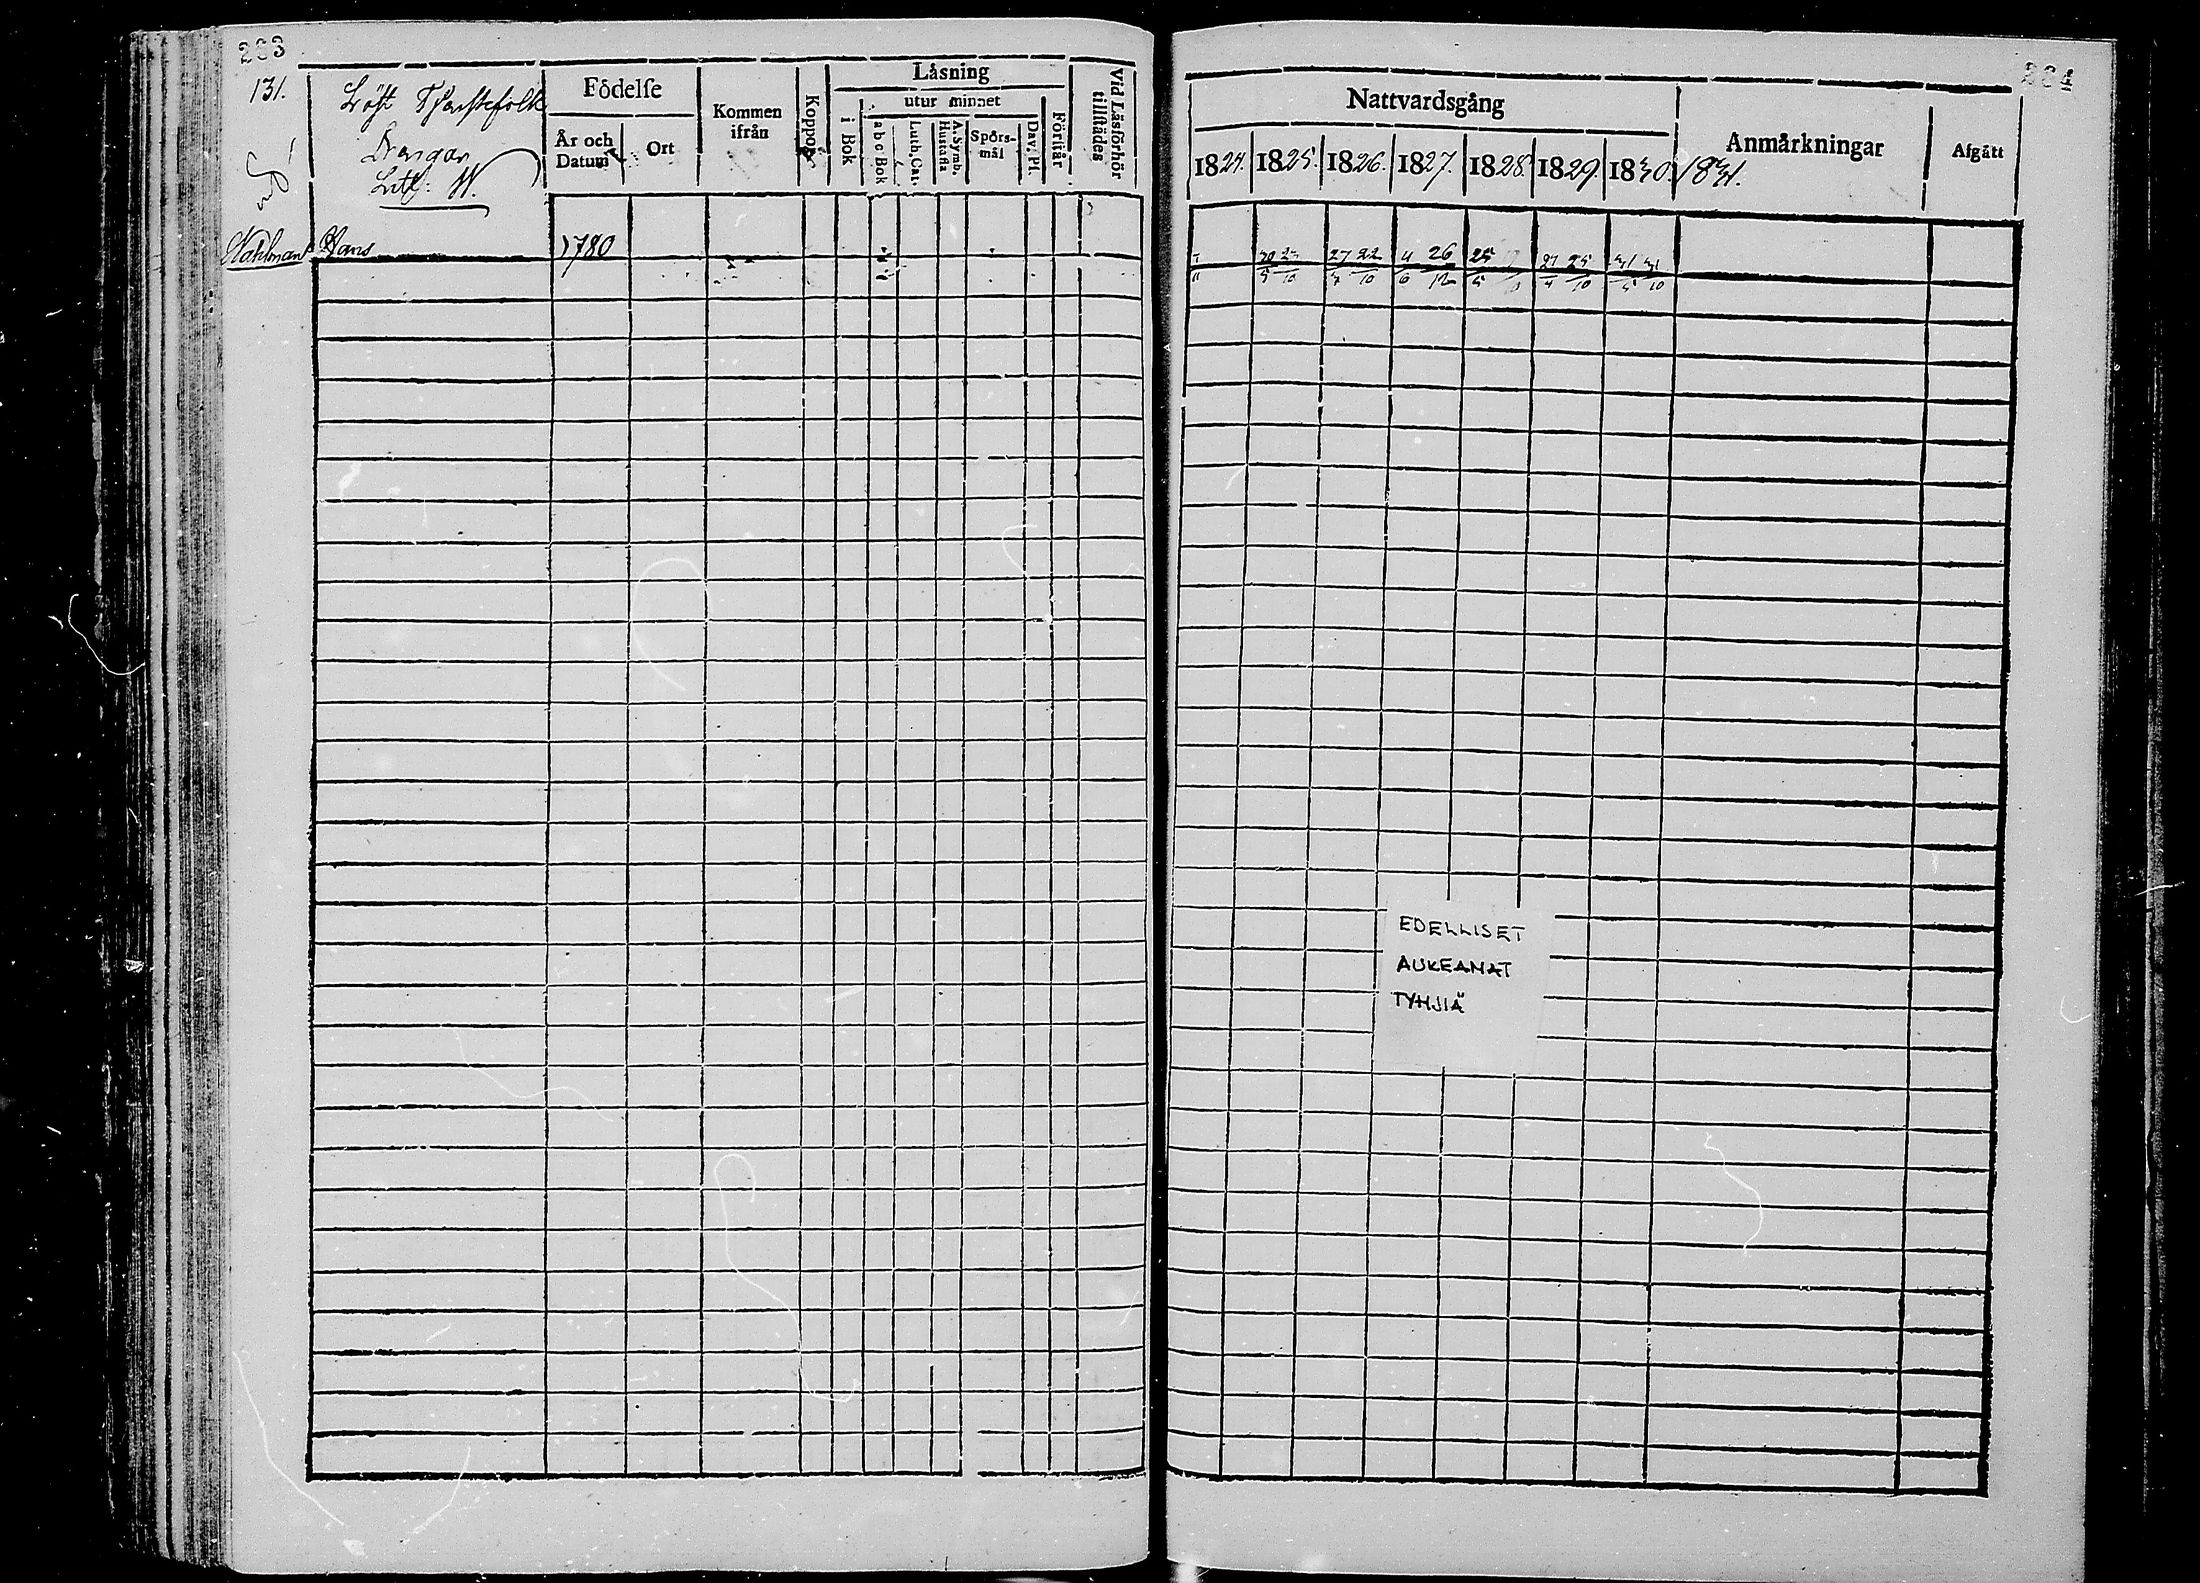 283
131.
Löst Tjenstefolk
Drengar
Litt: W.
Födelse
År och Datum
Ort
Kommen ifrån
Koppor
Läsning
utur minnet
i Bok
a b c Bok
Luth. Cat.
A. Symb. Hustafla
Spörsmål
Dav. Pl.
Förstår
Vid Läsförhör tillstädes
Wahlman Hans 1780
284
Nattvardsgång
1824. 1825. 1826. 1827. 1828. 1829. 1830. 1831.
Anmärkningar
Afgått
27 22 4 26 25 25 31 31
5 10 10 6 12 5 4 10 5 10
EDELLISET
AUKEAMAT
TYHJIÄ